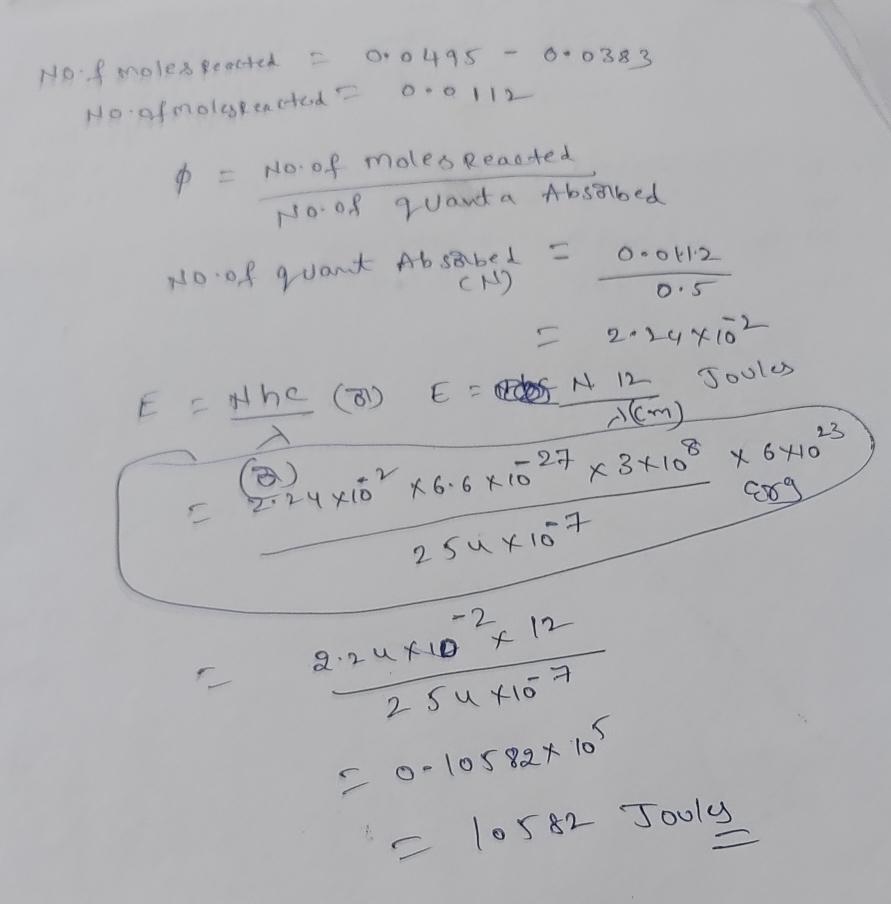 No.of moles reacted = 0.0495 - 0.0383
No.of moles reacted = 0.0112
φ = No.of moles Reacted
No.of quanta Absorbed
No.of quant Absorbed = 0.0112
(N) 0.5
= 2.24 × 10⁻²
E = Nhc (or) E = N 12 Joules
λ λ(cm)
(or)
= 2.24 × 10⁻² × 6.6 × 10⁻²⁷ × 3 × 10⁸ × 6 × 10²³ Erg
254 × 10⁻⁷
= 2.24 × 10⁻² × 12
254 × 10⁻⁷
= 0.10582 × 10⁵
= 10582 Jouly